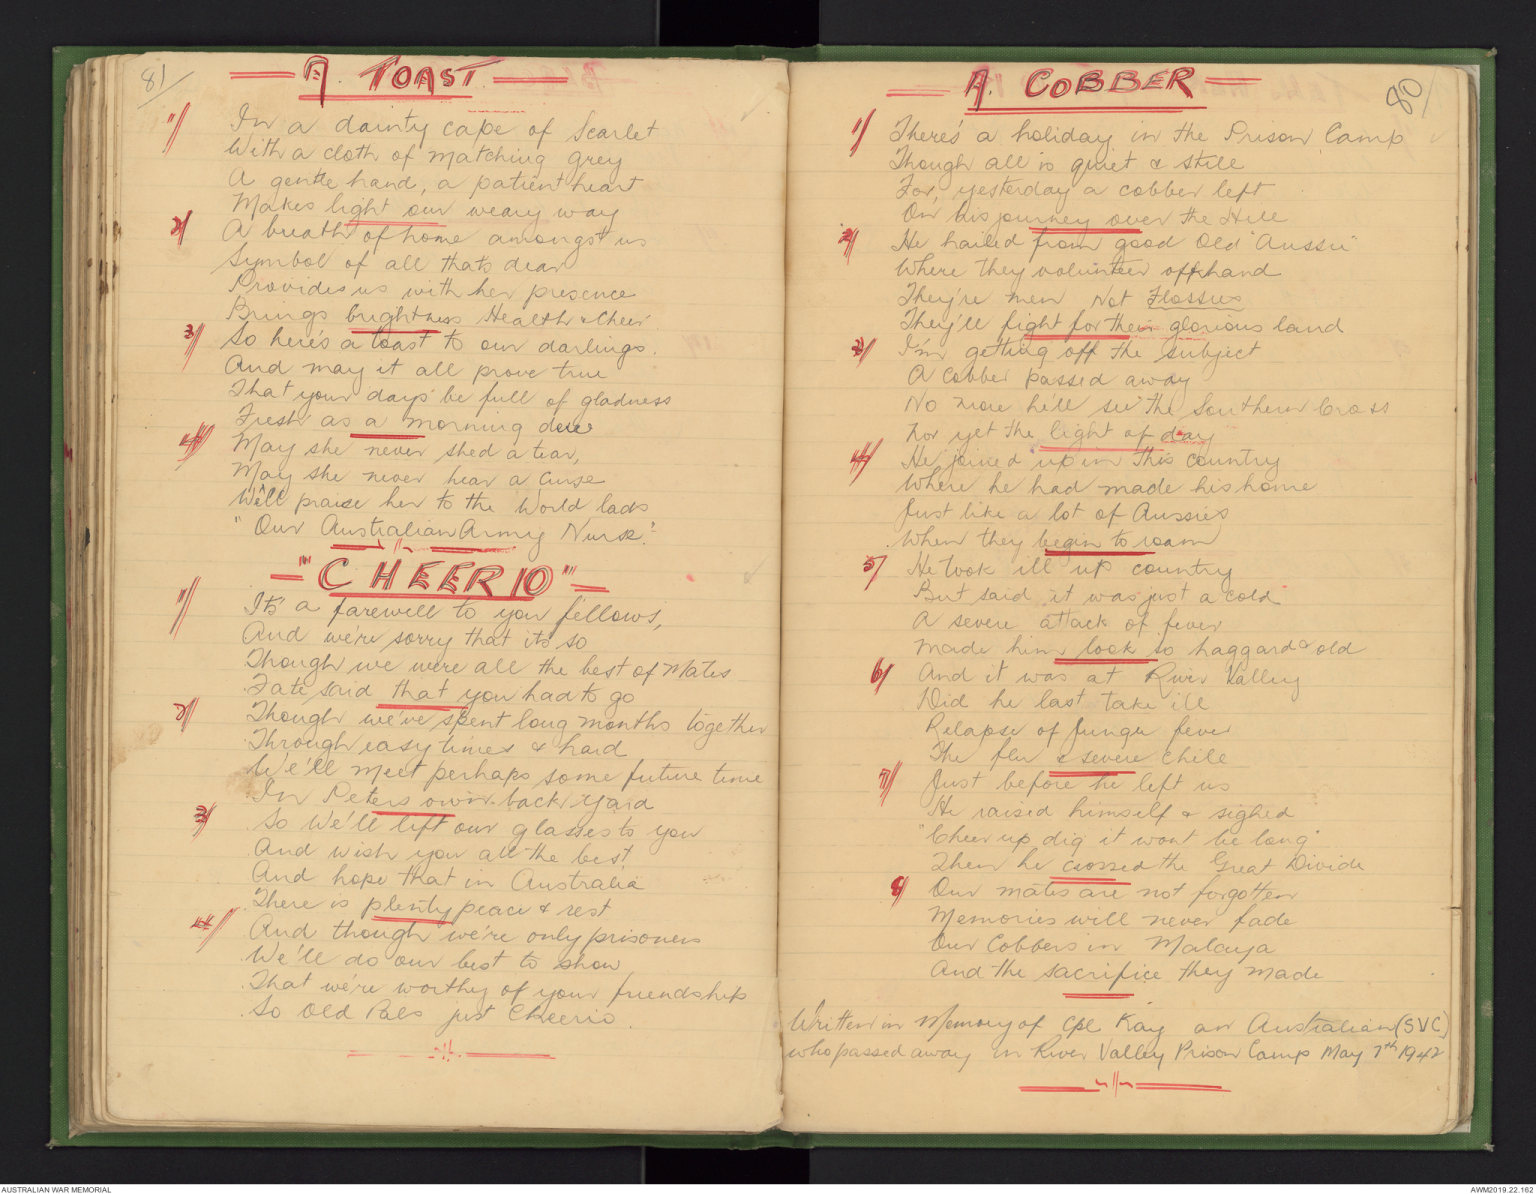 81/
A. TOAST.
1/ In a dainty cape of Scarlet
With a cloth of matching grey
A gentle hand, a patient heart
Makes light our weary way
2/ A breath of home amongst us
Symbol of all thats dear
Provides us with her presence
Brings brightness Health & Cheer.
3/ So here's a toast to our darlings.
And may it all prove true
That your days' be full of gladness
Fresh as a morning dew
4/ May she never shed a tear,
May she never hear a curse
We'll praise her to the World lads
"Our Australian Army Nurse."
"CHEERIO"
1/ It's a farewell to you fellows,
And we're sorry that its so
Though we were all the best of Mates
Fate said that you had to go
2/ Though we've spent long months together
Through easy times & hard
We'll meet perhaps some future time
In Peters own back yard
3/ So We'll lift our glasses to you
And wish you all the best
And hope that in Australia
There is plenty peace & rest
4/ And though we're only prisoners
We'll do our best to show
That we're worthy of your friendship
So Old Pals just Cheerio.
80/
A. COBBER
1/ There's a holiday in the Prison Camp
Though all is quiet & still
For, yesterday a cobber left
On his journey over the Hill
2/ He hailed from good Old "Aussie"
Where they volunteer offhand
They're men Not Flossies
They'll fight for their glorious land
3/ I'm getting off the subject
A Cobber passed away
No more he'll see the Southern Cross
Nor yet the light of day
4/ He joined up in this country
Where he had made his home
Just like a lot of Aussies
When they begin to roam
5/ He took ill up country
But said it was just a cold
A severe attack of fever
Made him look so haggard & old
6/ And it was at River Valley
Did he last take ill
Relapse of Jungle fever
The flu & severe chill
7/ Just before he left us
He raised himself & sighed
"Cheer up dig it wont be long"
Then he crossed the Great Divide
8/ Our mates are not forgotten
Memories will never fade
Our Cobbers in Malaya
And the sacrifice they made
Written in Memory of Cpl Kay an Australian (SVC)
who passed away in River Valley Prison Camp May 7th 1942
AUSTRALIAN WAR MEMORIAL
AWM2019.22.162